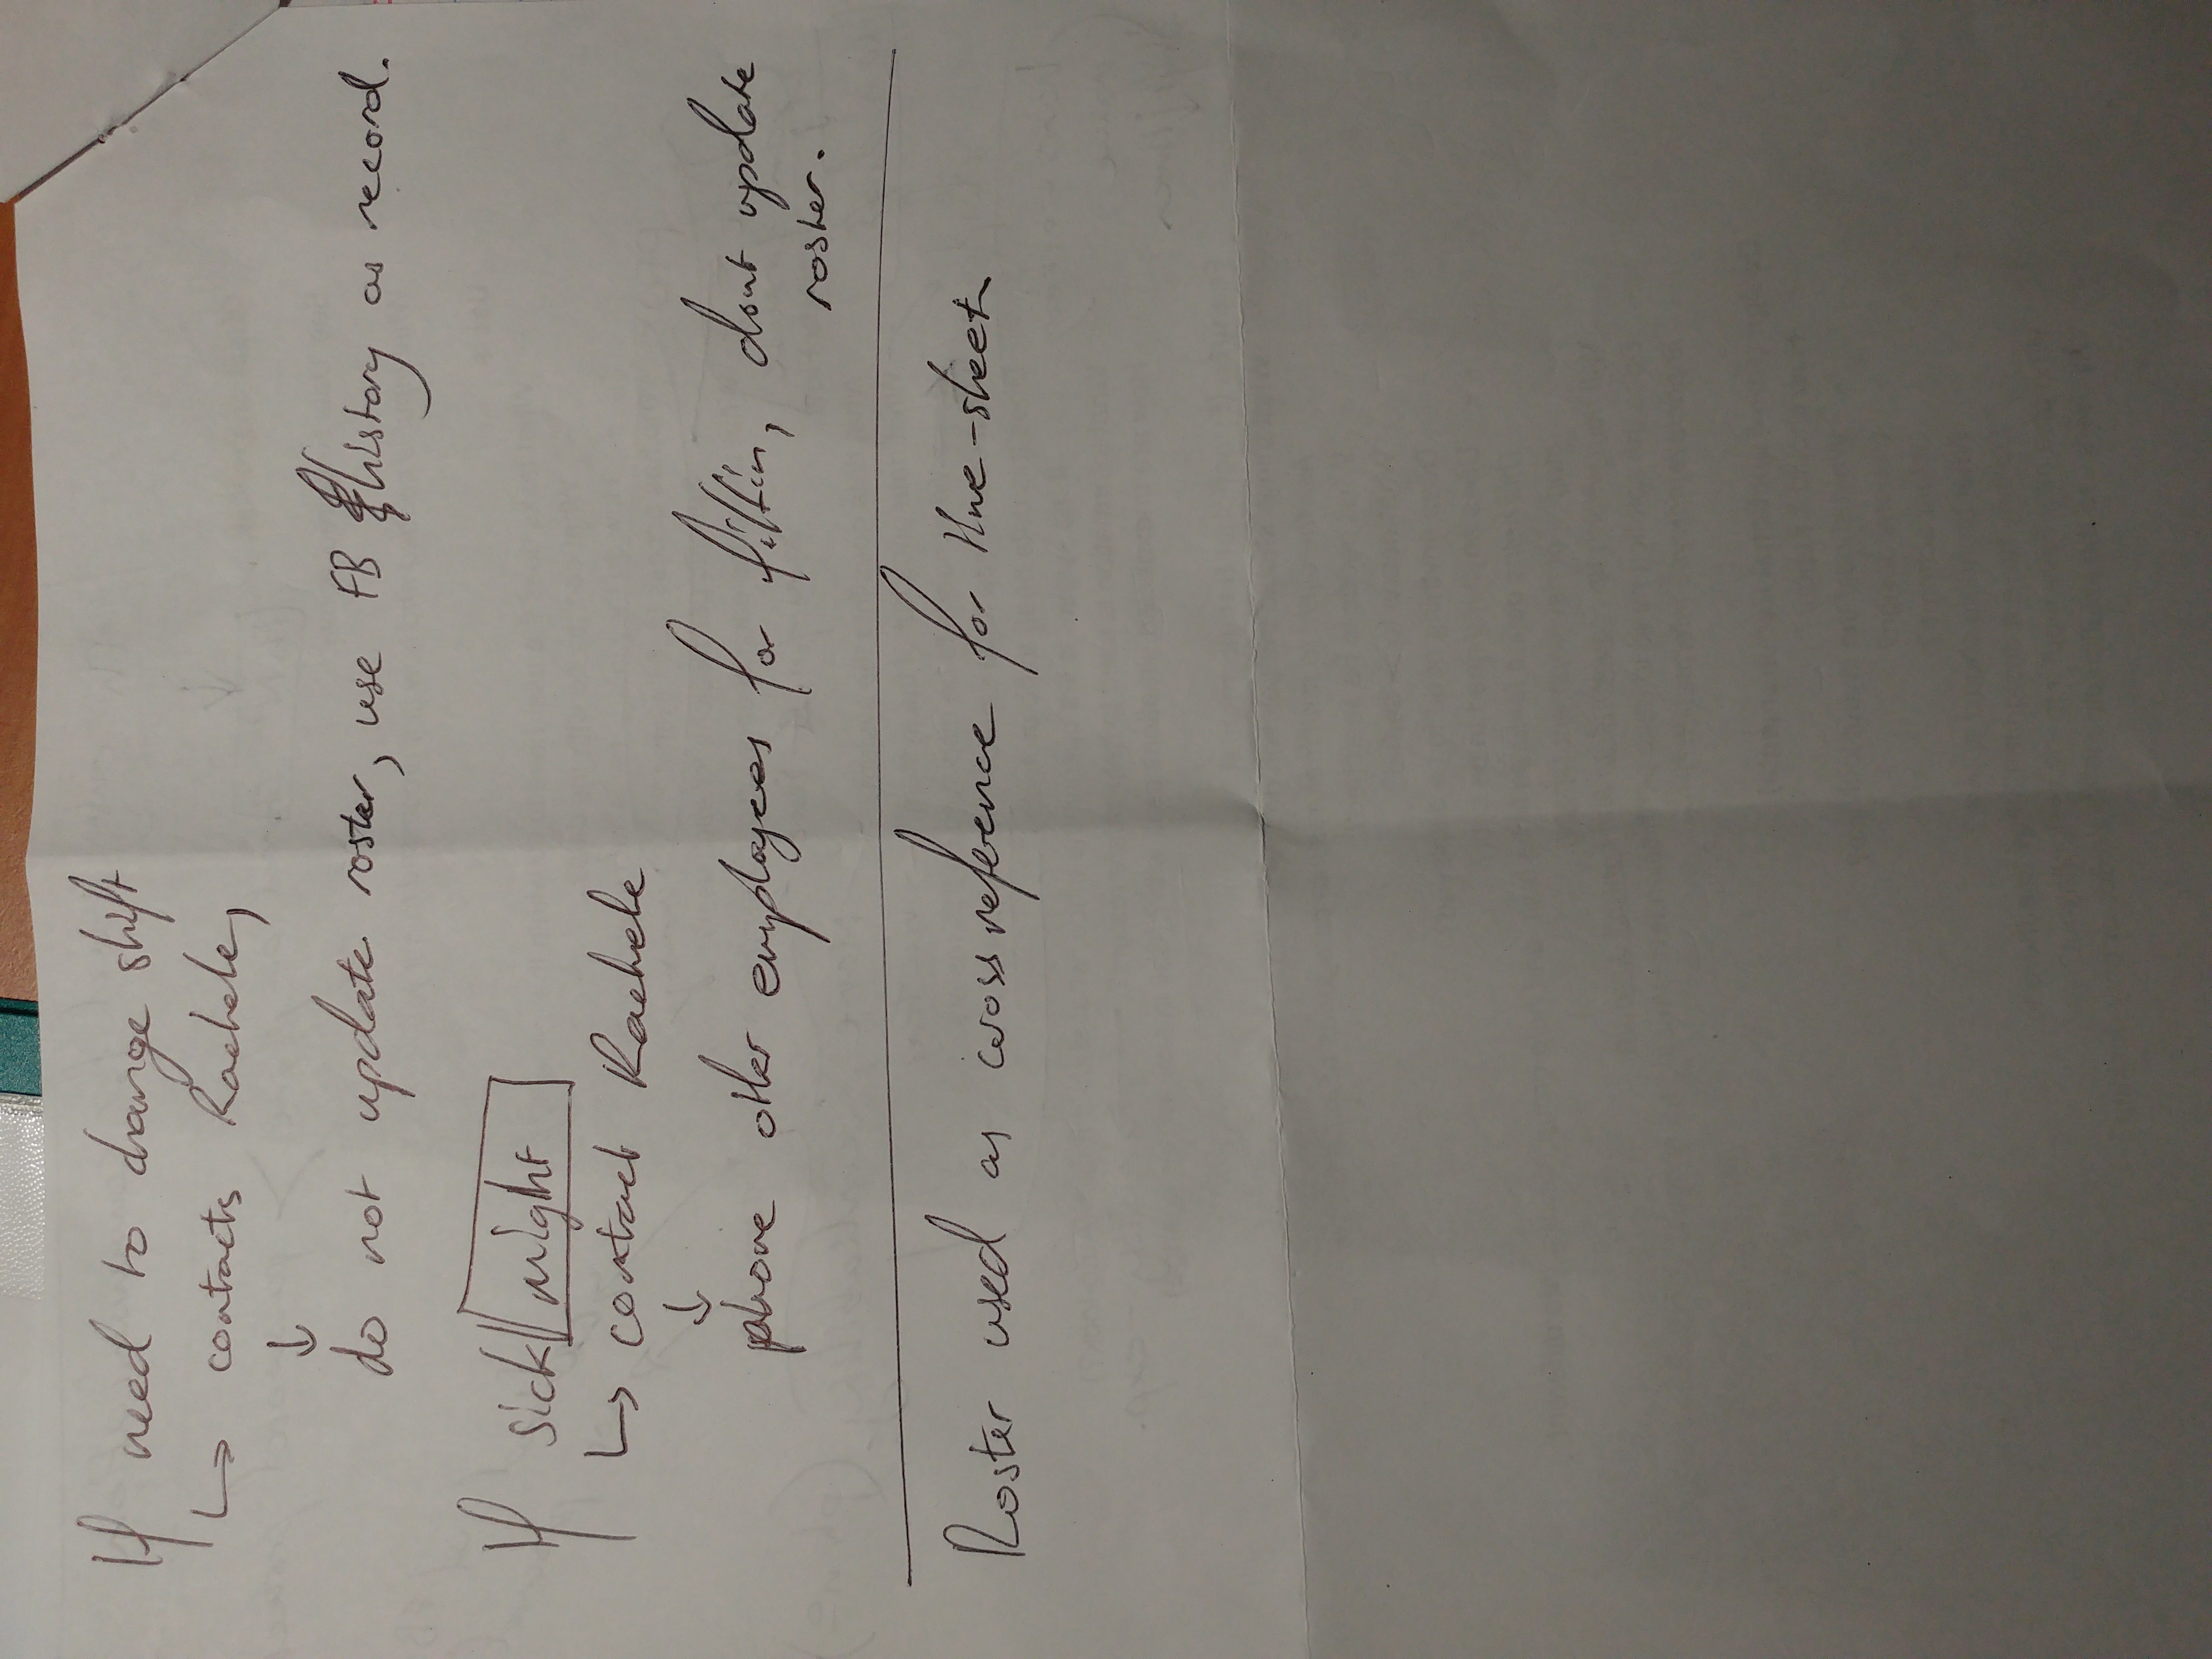 If need to change shift
↳ contacts Rachele,
↓
do not update roster, use FB history as record.
If sick might
↳ contact Rachele
↓
phone other employees for fill in, dont update
roster.
Roster used as cross reference for time-sheet